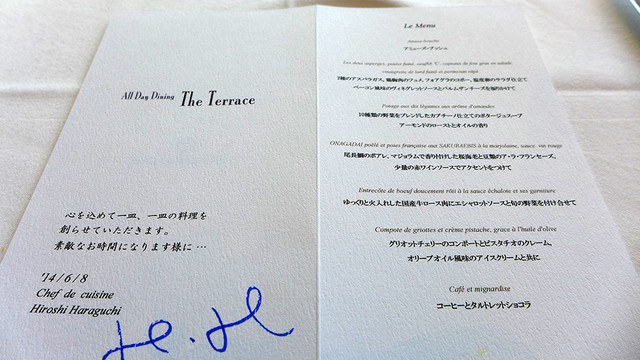 All Day Dining The Terrace
心を込めて一皿、一皿の料理を
創らせていただきます。
素敵なお時間になります様に…
'14/6/8
Chef de cuisine
Hiroshi Haraguchi
H.H
Le Menu
Amuse-bouche
アミューズ・ブッシュ
Les deux asperges, poulet fumé, oeuf et copeaux de foie gras en salade,
vinaigrette de lard fumé et parmesan râpé
2種のアスパラガス、鶏胸肉のフュメ、フォアグラのコポー、温度卵のサラダ仕立て
ベーコン風味のヴィネグレットソースとパルムザンチーズを振りかけて
Potage aux dix légumes aux arôme d'amandes
10種類の野菜をブレンドしたカプチーノ仕立てのポタージュスープ
アーモンドのローストとオイルの香り
ONAGADAI poêlé et poses françaises aux SAKURAEBIS à la marjolaine, sauce vin rouge
尾長鯛のポアレ、マジョラムで香り付けした桜海老と豆類のア・ラ・フランセーズ、
少量の赤ワインソースでアクセントをつけて
Entrecôte de boeuf doucement rôti à la sauce échalote et ses garniture
ゆっくりと火入れした国産牛ロース肉にエシャロットソースと旬の野菜を付け合せて
Compote de griottes et crème pistache, grace à l'huile d'olive
グリオットチェリーのコンポートとピスタチオのクレーム、
オリーブオイル風味のアイスクリームと共に
Café et mignardise
コーヒーとタルトレットショコラ